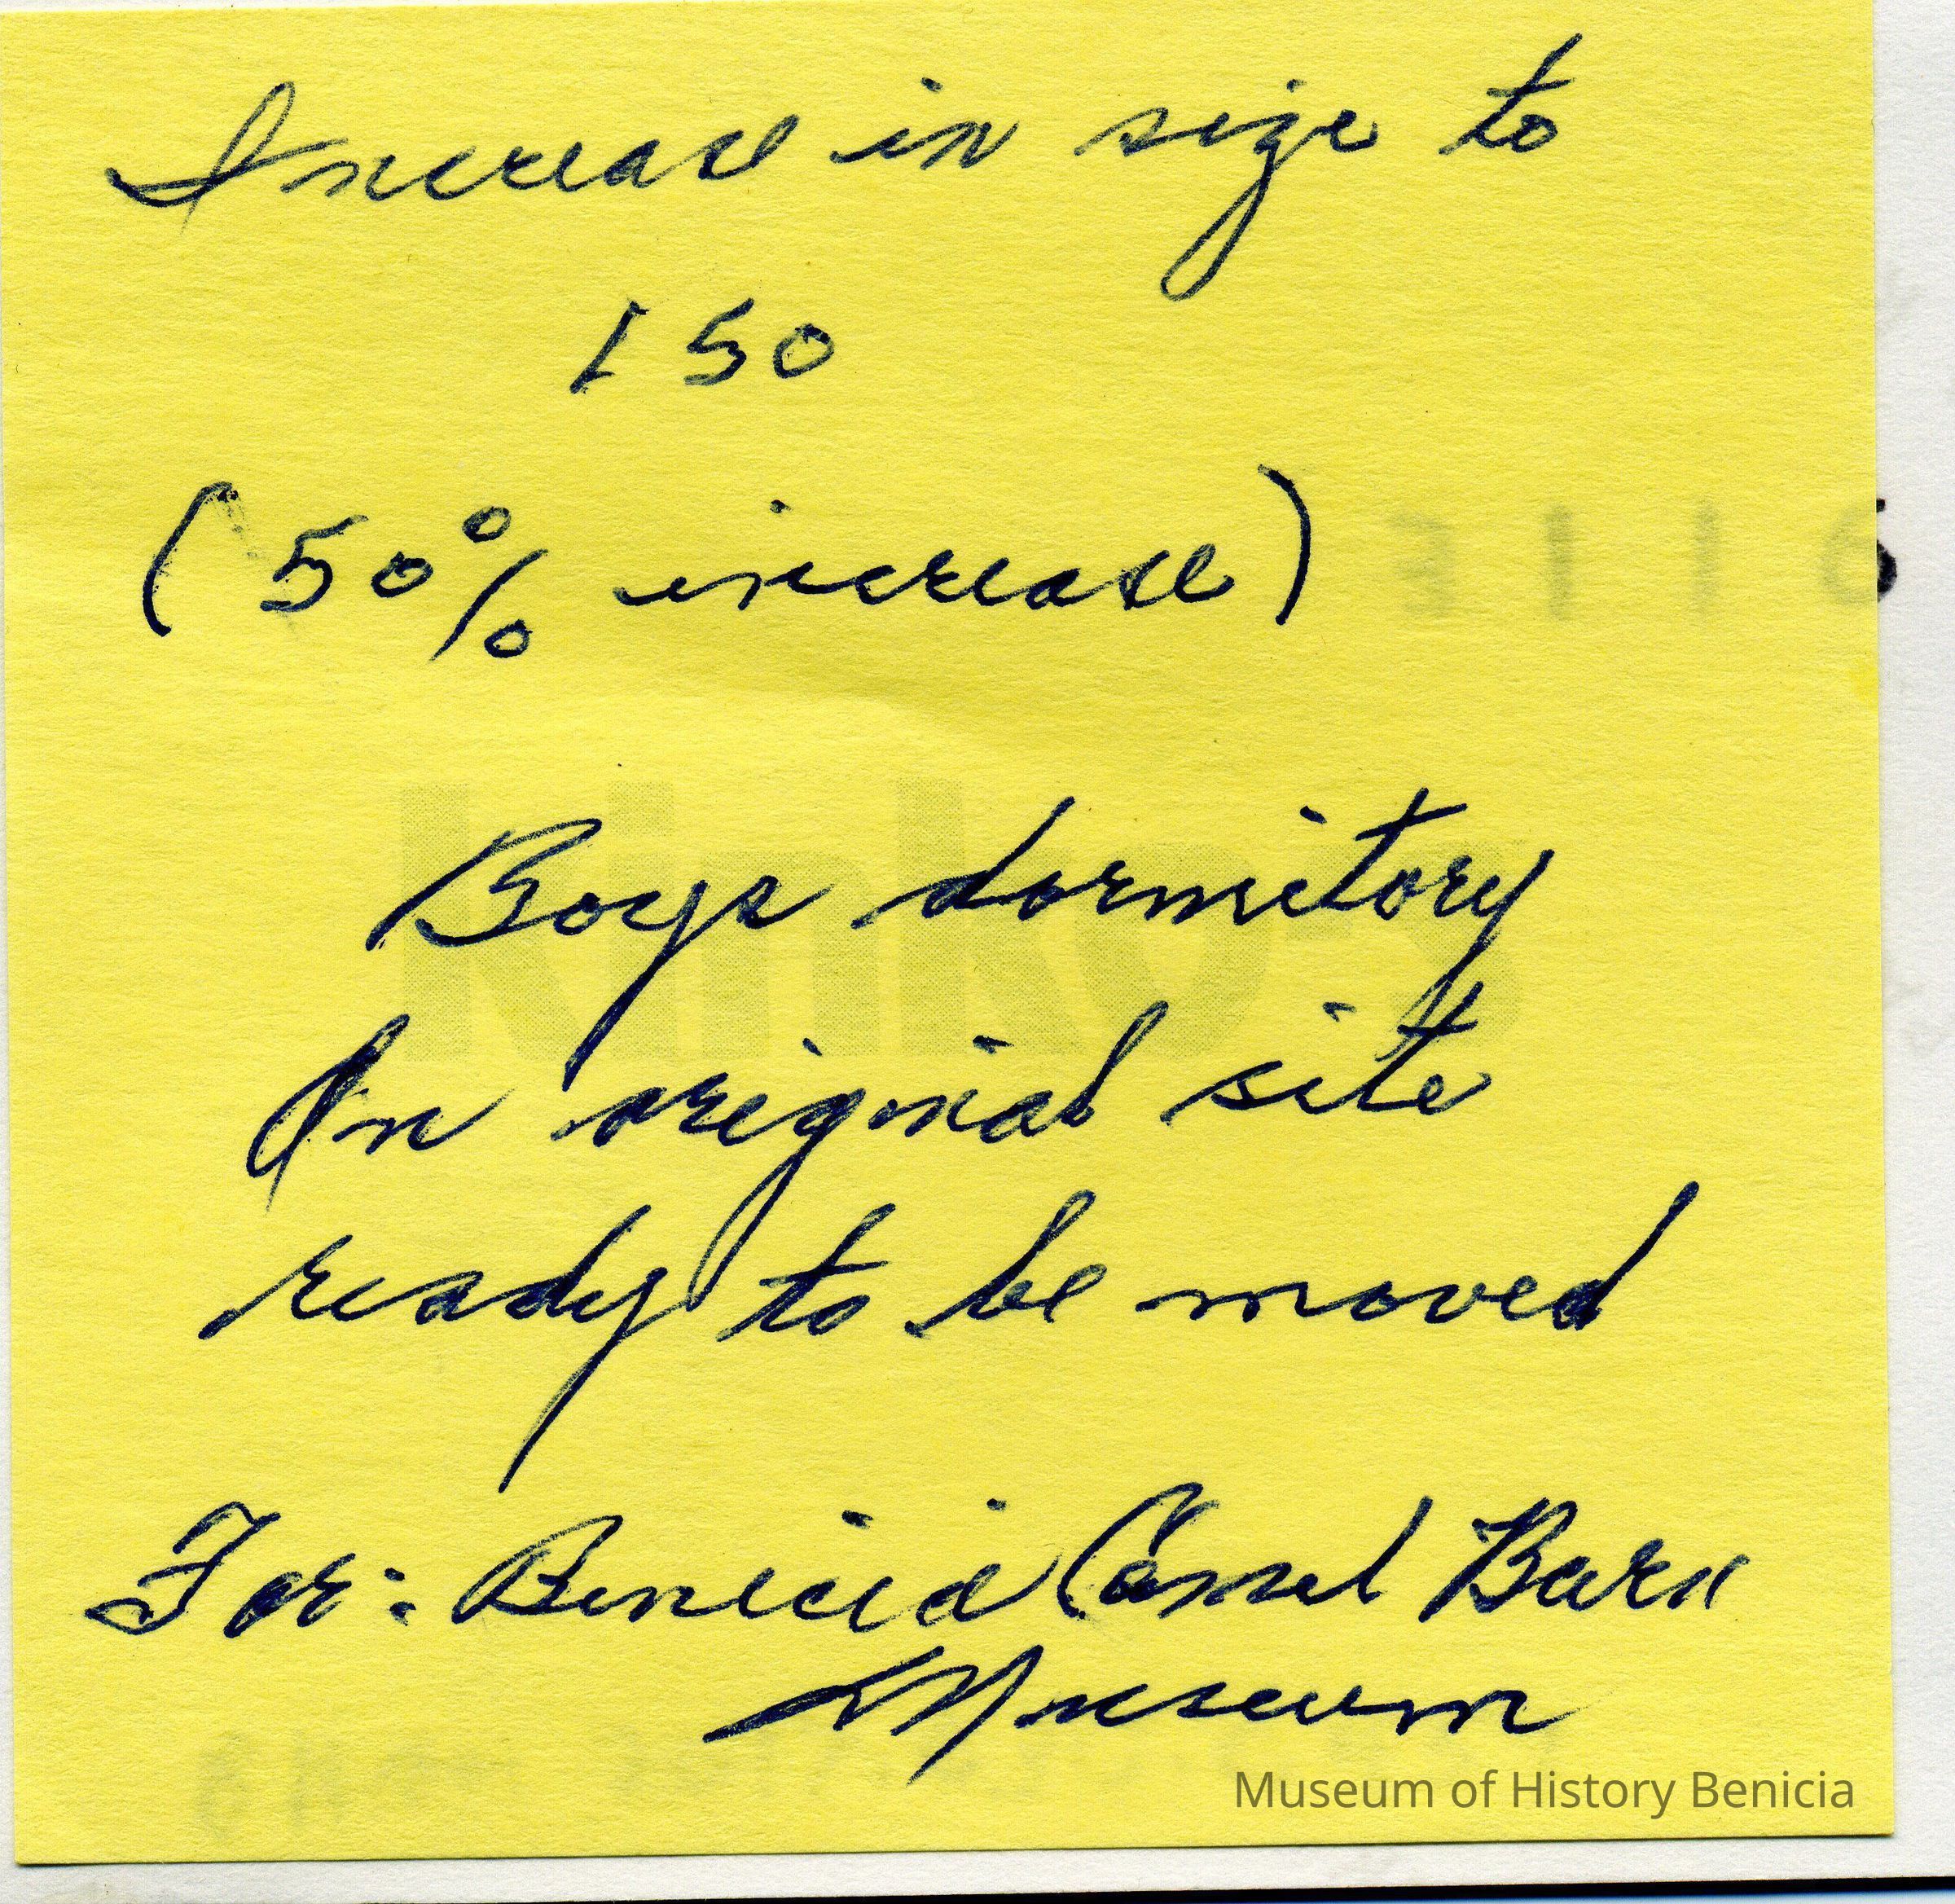 Increase in size to
150
(50% increase)
kinko's
Boys dormitory
On original site
ready to be moved
For: Benicia Camel Barn
Museum
Museum of History Benicia